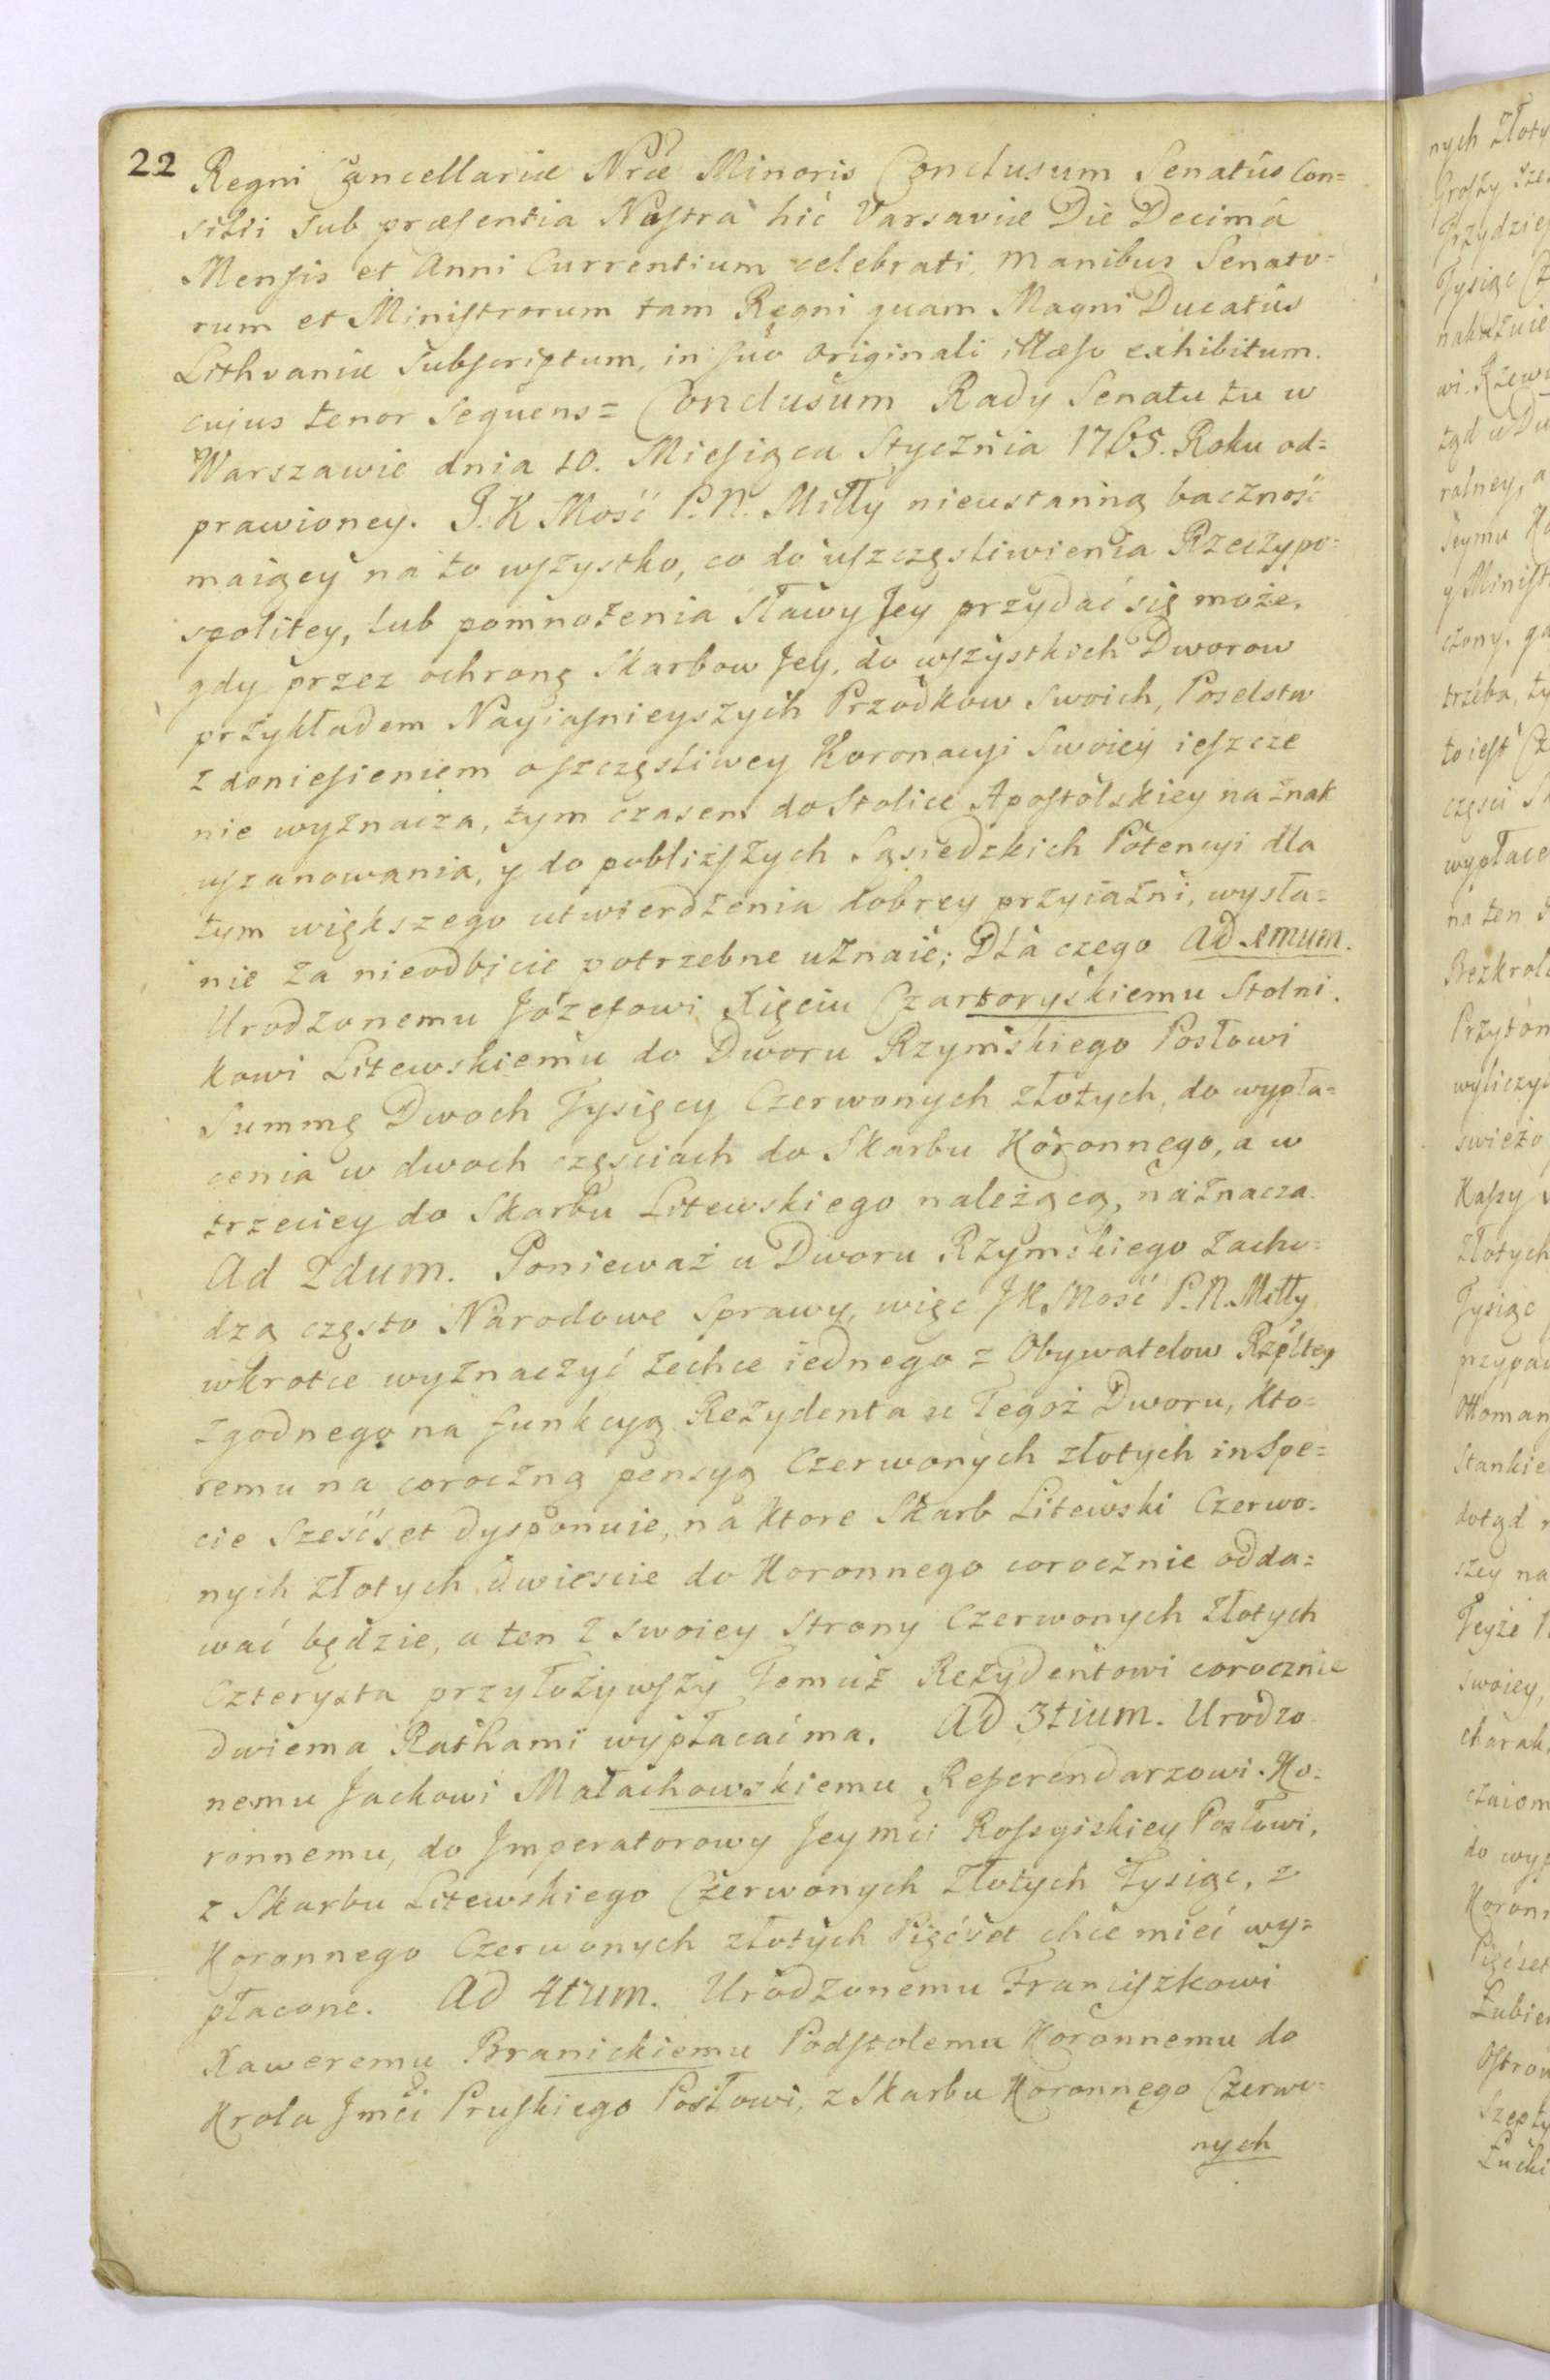 22
Regni Cancellariæ Nræ Minoris Conclusum Senatûs Con=
silii sub præsentia Nostra hic Varsaviæ Die Decimâ
Mensis et Anni Currentium celebrati, manibus Senato=
rum et Ministrorum tam Regni quam Magni Ducatûs
Lithvaniæ Subscriptum, in suo originali illæso exhibitum.
cujus tenor sequens= Conclusum Rady Senatu tu w
Warszawie dnia 10. Miesiąca Stycznia 1765. Roku od=
prawioney. J. K Mość P. N. Miłły nieustanną baczność
maiący na to wszystko, co do uszczęsliwienia Rzeczypo=
spolitey, lub pomnożenia Sławy Jey przydać się może,
gdy przez ochronę Skarbow Jey, do wszystkich Dworow
przykładem Nayiaśnieyszych Przodkow Swoich, Poselstw
z doniesieniem o szczęsliwey Koronacyi Swoiey ieszcze
nie wyznacza, tym czasem do Stolice Apostolskiey na znak
uszanowania, y do pobliższych Sąsiedzkich Potencyi dla
tym większego utwierdzenia dobrey przyiaźni, wysła=
nie za nieodbicie potrzebne uznaie; Dla czego Ad 1mum.
Urodzonemu Józefowi Xięciu Czartoryskiemu Stolni.
kowi Litewskiemu do Dworu Rzymskiego Posłowi
Summę Dwoch Tysięcy Czerwonych złotych, do wypła=
cenia w dwoch częsciach do Skarbu Koronnego, a w
trzeciey do Skarbu Litewskiego należącą, naznacza.
Ad 2dum. Ponieważ u Dworu Rzymskiego zacho=
dzą często Narodowe Sprawy, więc JK Mość P. N. Miłły
wkrotce wyznaczyć zechce iednego z Obywatelow Rzpltey
zgodnego na funkcyą Rezydenta u Tegoż Dworu, kto=
remu na coroczną pensyą Czerwonych złotych in Spe=
cie Sześćset dysponuie, na ktore Skarb Litewski Czerwo=
nych złotych dwiescie do Koronnego corocznie odda=
wać będzie, a ten z swoiey Strony Czerwonych złotych
Czterysta przyłożywszy Temuż Rezydentowi corocznie
dwiema Rathami wypłacać ma. Ad 3tium. Urodzo
nemu Jackowi Małachowskiemu Referendarzowi Ko=
ronnemu, do Jmperatorowy Jeymci Rossyiskiey Posłowi,
z Skarbu Litewskiego Czerwonych złotych Tysiąc, z
Koronnego Czerwonych złotych Pięćset chce mieć wy=
płacone. Ad 4tum. Urodzonemu Franciszkowi
Xaweremu Branickiemu Podstolemu Koronnemu do
Krola Jmći Pruskiego Posłowi, z Skarbu Koronnego Czerwo=
nych
nych złoty
Groszy
Trzydzieś
Tysiąc Cz
wi. Rzewu
ralney, a
Seymu Ko
y Minist
czony. ga
trzeba, ty
to iest Cz
częsci Sk
wypłace
na ten
Bezkrole
Przytom
wyliczy
swieżo
Kassy
złotych
Tysiąc
przypad
Ottoman
Stankie
dotąd
szey na
Teyże
swoiey,
charak.
do wyp
Koron
Pięćset
Łubie
Ostrow
Szepty
Łucki